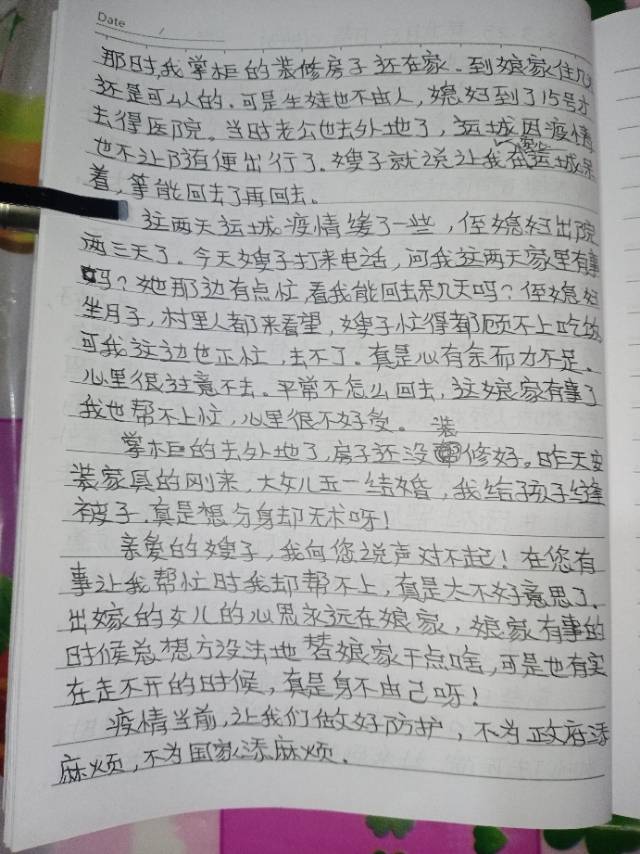 Date /
那时,我掌柜的装修房子还在家.到娘家住几
还是可以的.可是生娃也不由人,媳妇到了15号才
去得医院。当时老公也去外地了,运城因疫情
也不让随便出行了.嫂子就说让我在运城呆
着,等能回去了再回去。
这两天运城疫情缓了一些,侄媳妇出院
两三天了.今天嫂子打来电话,问我这两天家里有事
吗?她那边有点忙,看我能回去呆几天吗?侄媳妇
坐月子,村里人都来看望,嫂子忙得都顾不上吃饭
可我这边也正忙,去不了.真是心有余而力不足.
心里很过意不去。平常不怎么回去,这娘家有事了
我也帮不上忙,心里很不好受。
掌柜的去外地了,房子还没装修好。昨天安
装家具的刚来,大女儿五一结婚,我给孩子缝
被子.真是想分身却无术呀!
亲爱的嫂子,我向您说声对不起!在您有
事让我帮忙时我却帮不上,真是太不好意思了.
出嫁的女儿的心思永远在娘家,娘家有事的
时候总想方没法地替娘家干点啥,可是也有实
在走不开的时候,真是身不由己呀!
疫情当前,让我们做好防护,不为政府添
麻烦,不为国家添麻烦.